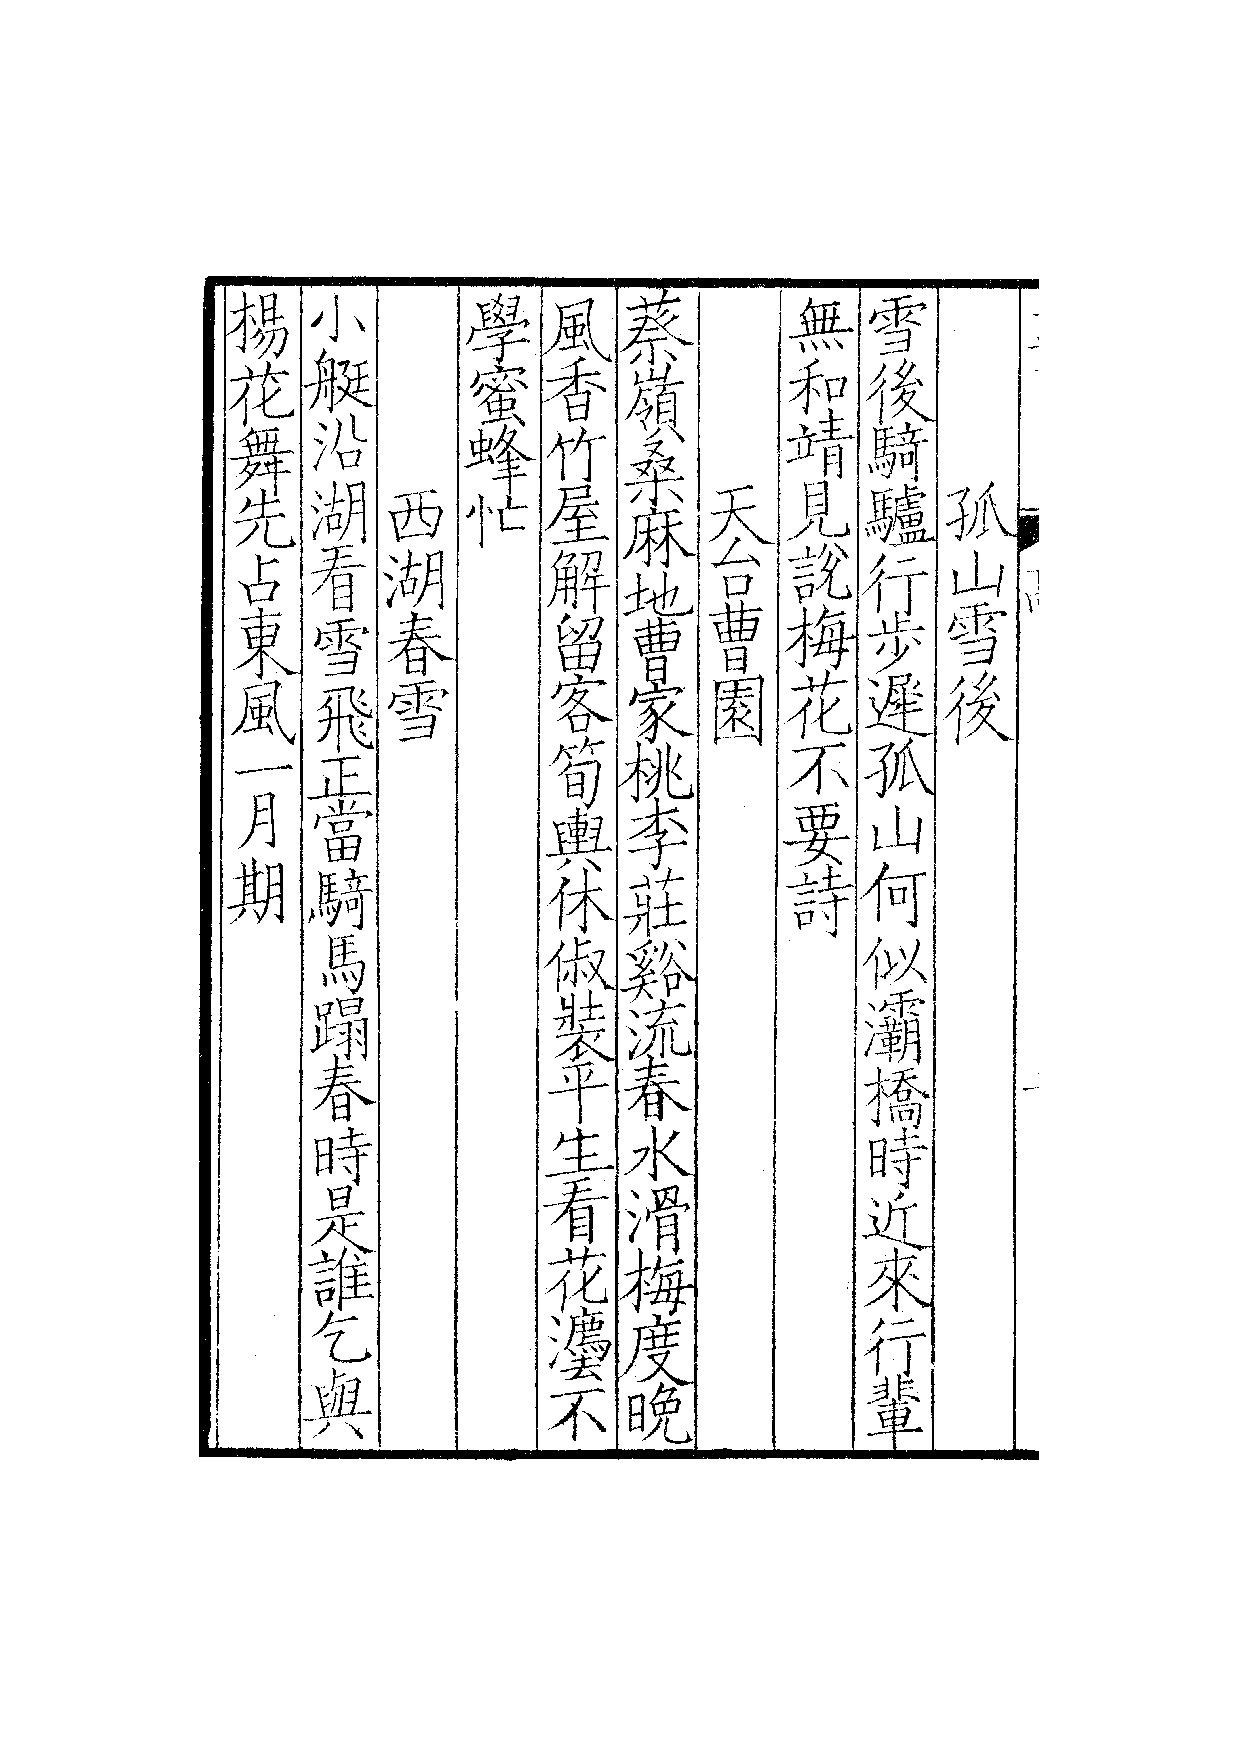 孤山雪後
雪後騎驢行步遲孤山何似灞橋時近來行輩
無和靖見說梅花不要詩
天台曹園
蔡嶺桑麻地曹家桃李莊谿流春水滑梅度晚
風香竹屋解留客筍輿休俶裝平生看花灋不
學蜜蜂忙
西湖春雪
小艇沿湖看雪飛正當騎馬蹋春時是誰乞與
楊花舞先占東風一月期